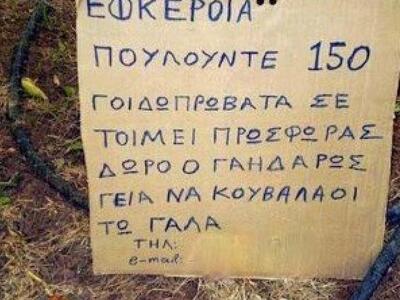 ΕΦΚΕΡΟΙΑ"
ΠΟΥΛΟΥΝΤΕ 150
ΓΟΙΔΩΠΡΩΒΑΤΑ ΣΕ
ΤΟΙΜΕΙ ΠΡΟΣΦΩΡΑΣ
ΔΩΡΟ Ο ΓΑΗΔΑΡΟΣ
ΓΕΙΑ ΝΑ ΚΟΥΒΑΛΑΟΙ
ΤΩ ΓΑΛΑ
ΤΗΛ:
e-mail: